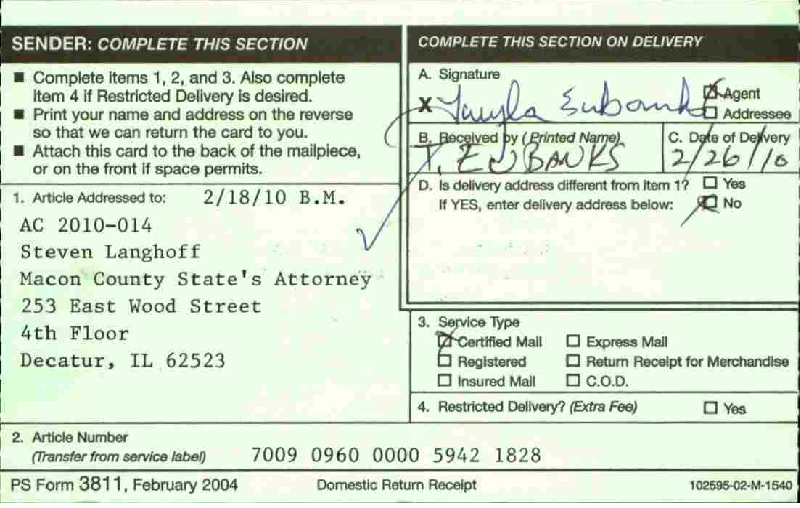 SENDER: COMPLETE THIS SECTION
■ Complete items 1, 2, and 3. Also complete
item 4 if Restricted Delivery is desired.
■ Print your name and address on the reverse
so that we can return the card to you.
■ Attach this card to the back of the mailpiece,
or on the front if space permits.
1. Article Addressed to: 2/18/10 B.M.
AC 2010-014
Steven Langhoff
Macon County State's Attorney
253 East Wood Street
4th Floor
Decatur, IL 62523
2. Article Number
(Transfer from service label) 7009 0960 0000 5942 1828
COMPLETE THIS SECTION ON DELIVERY
A. Signature
X Eubanks
☒ Agent
☐ Addressee
B. Received by (Printed Name)
T. EUBANKS
C. Date of Delivery
2/26/10
D. Is delivery address different from item 1? ☐ Yes
If YES, enter delivery address below: ☒ No
3. Service Type
☒ Certified Mail ☐ Express Mail
☐ Registered ☐ Return Receipt for Merchandise
☐ Insured Mail ☐ C.O.D.
4. Restricted Delivery? (Extra Fee) ☐ Yes
PS Form 3811, February 2004 Domestic Return Receipt 102595-02-M-1540